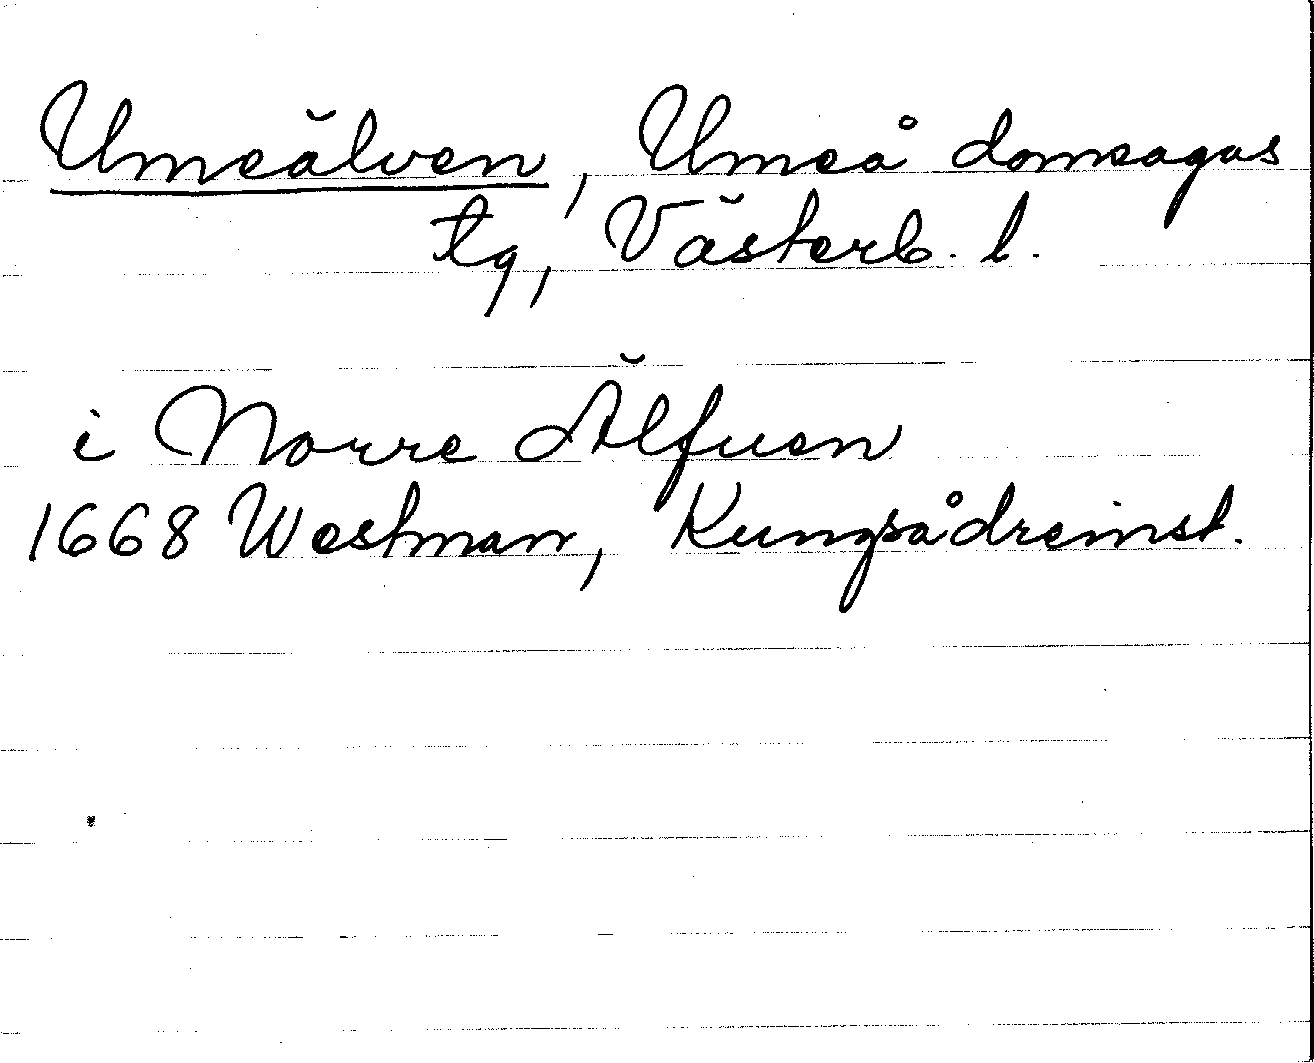 Umeälven, Umeå domsagas
tg, Västerb. l.
i Norre Älfuen
1668 Westman, Kungsådreinst.